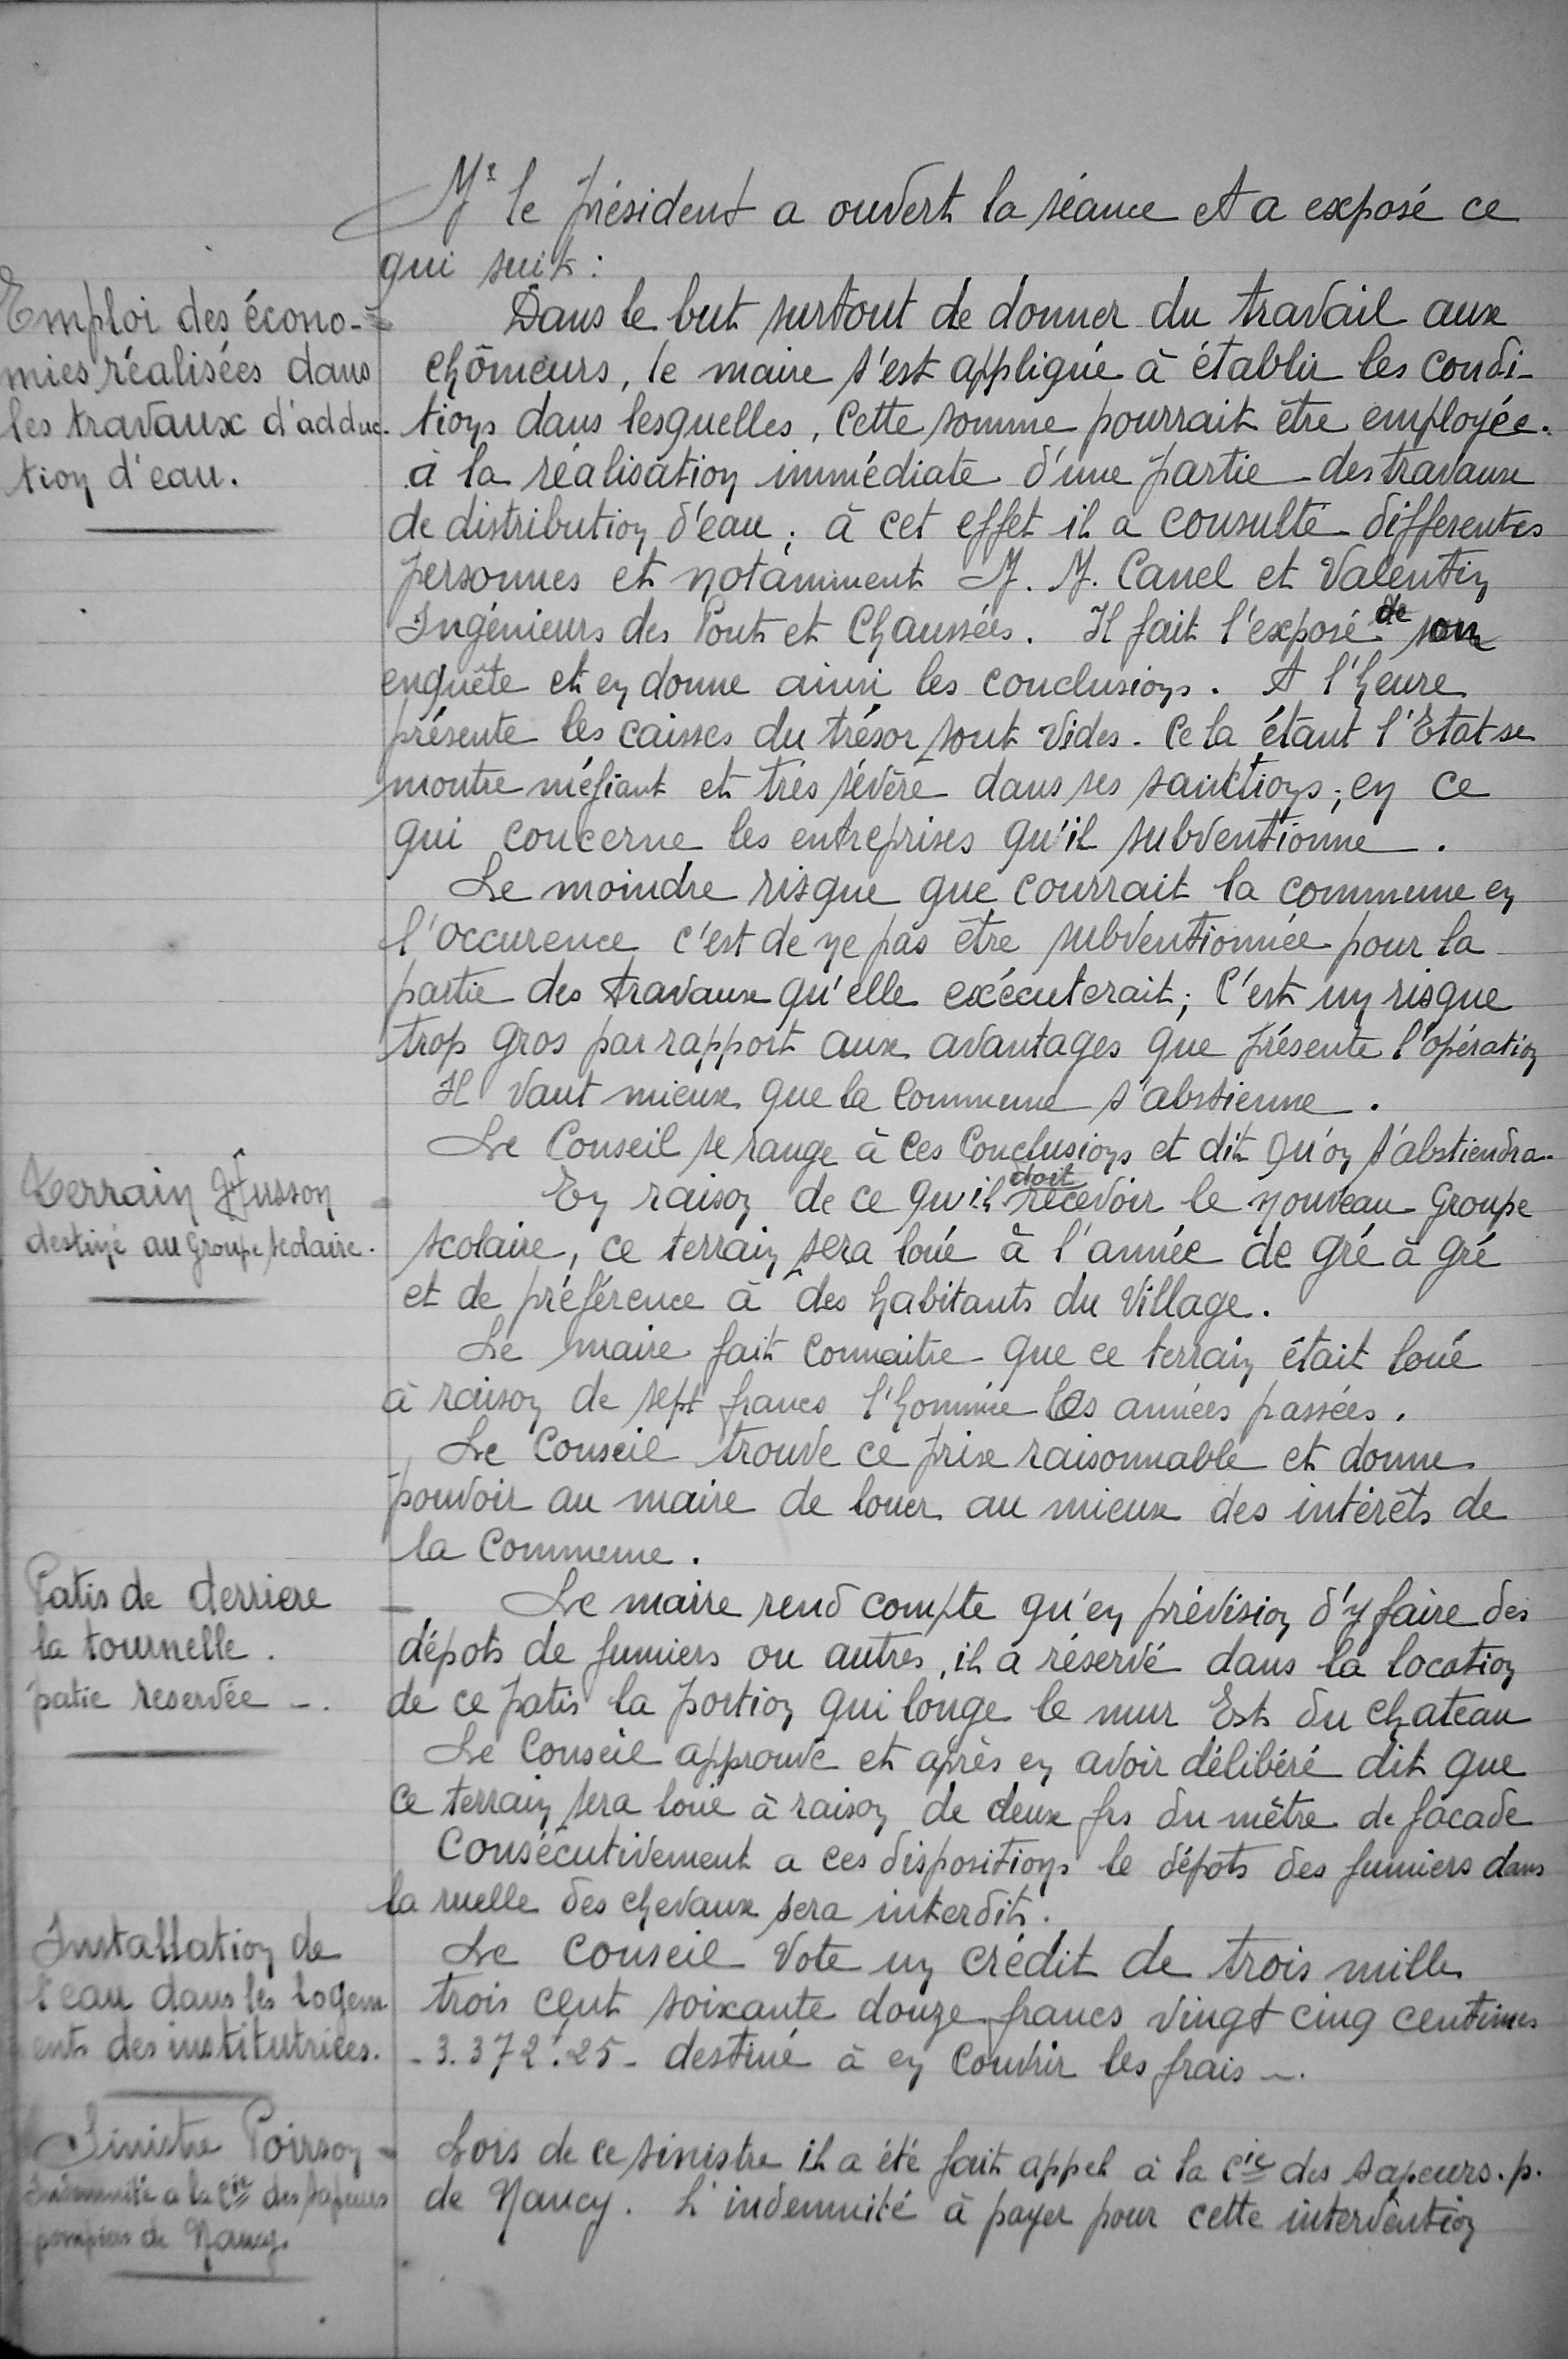 Mr le président a ouvert la séance et a exposé ce
qui suit :
Emploi des écono-
mies réalisées dans
les travaux d'adduc-
tion d'eau.
Dans le but surtout de donner du travail aux
chômeurs, le maire s'est appliqué à établir les condi-
tions dans lesquelles, cette somme pourrait être employée.
à la réalisation immédiate d'une partie des travaux
de distribution d'eau ; à cet effet il a consulté differentes
personnes et notamment M. M. Canel et Valentin
Ingénieurs des Ponts et Chaussées. Il fait l'exposé de son
enquête et en donne ainsi les conclusions. A l'heure
présente les caisses du trésor sont vides. Cela étant l'Etat se
montre méfiant et très sévère dans ses sanctions ; en ce
qui concerne les entreprises qu'il subventionne.
Le moindre risque que courrait la commune en
l'occurence c'est de ne pas être subventionnée pour la
partie des travaux qu'elle exécuterait ; C'est un risque
trop gros par rapport aux avantages que présente l'opération
Il vaut mieux que la Commune s'abstienne.
Le Conseil se range à ces Conclusions et dit qu'on s'abstiendra.
Terrain Husson
destiné au Groupe scolaire.
En raison de ce qu'il doit recevoir le nouveau Groupe
scolaire, ce terrain sera loué à l'année de gré à gré
et de préférence à des habitants du Village.
Le maire fait connaitre que ce terrain était loué
à raison de sept francs l'hommée les années passées.
Le Conseil trouve ce prix raisonnable et donne
pouvoir au maire de louer au mieux des intérêts de
la Commune.
Patis de derriere
la tournelle.
patie reservée -.
Le maire rend compte qu'en prévision d'y faire des
dépots de fumiers ou autres, il a réservé dans la location
de ce patis la portion qui longe le mur Est du chateau
Le Conseil approuve et après en avoir délibéré dit que
ce terrain sera loué à raison de deux frs du mètre de facade
Consécutivement a ces dispositions le dépots des fumiers dans
la ruelle des chevaux sera interdit.
Installation de
l'eau dans les logem
ents des institutrices.
Le Conseil vote un crédit de trois mille
trois cent soixante douze francs vingt cinq centimes
- 3.372f.25 - destiné à en couvrir les frais -.
Sinistre Poirson -
Indemnité a la Cie des sapeurs
pompiers de Nancy.
Lors de ce sinistre il a été fait appel à la Cie des sapeurs. p.
de Nancy. L'indemnité à payer pour cette intervention